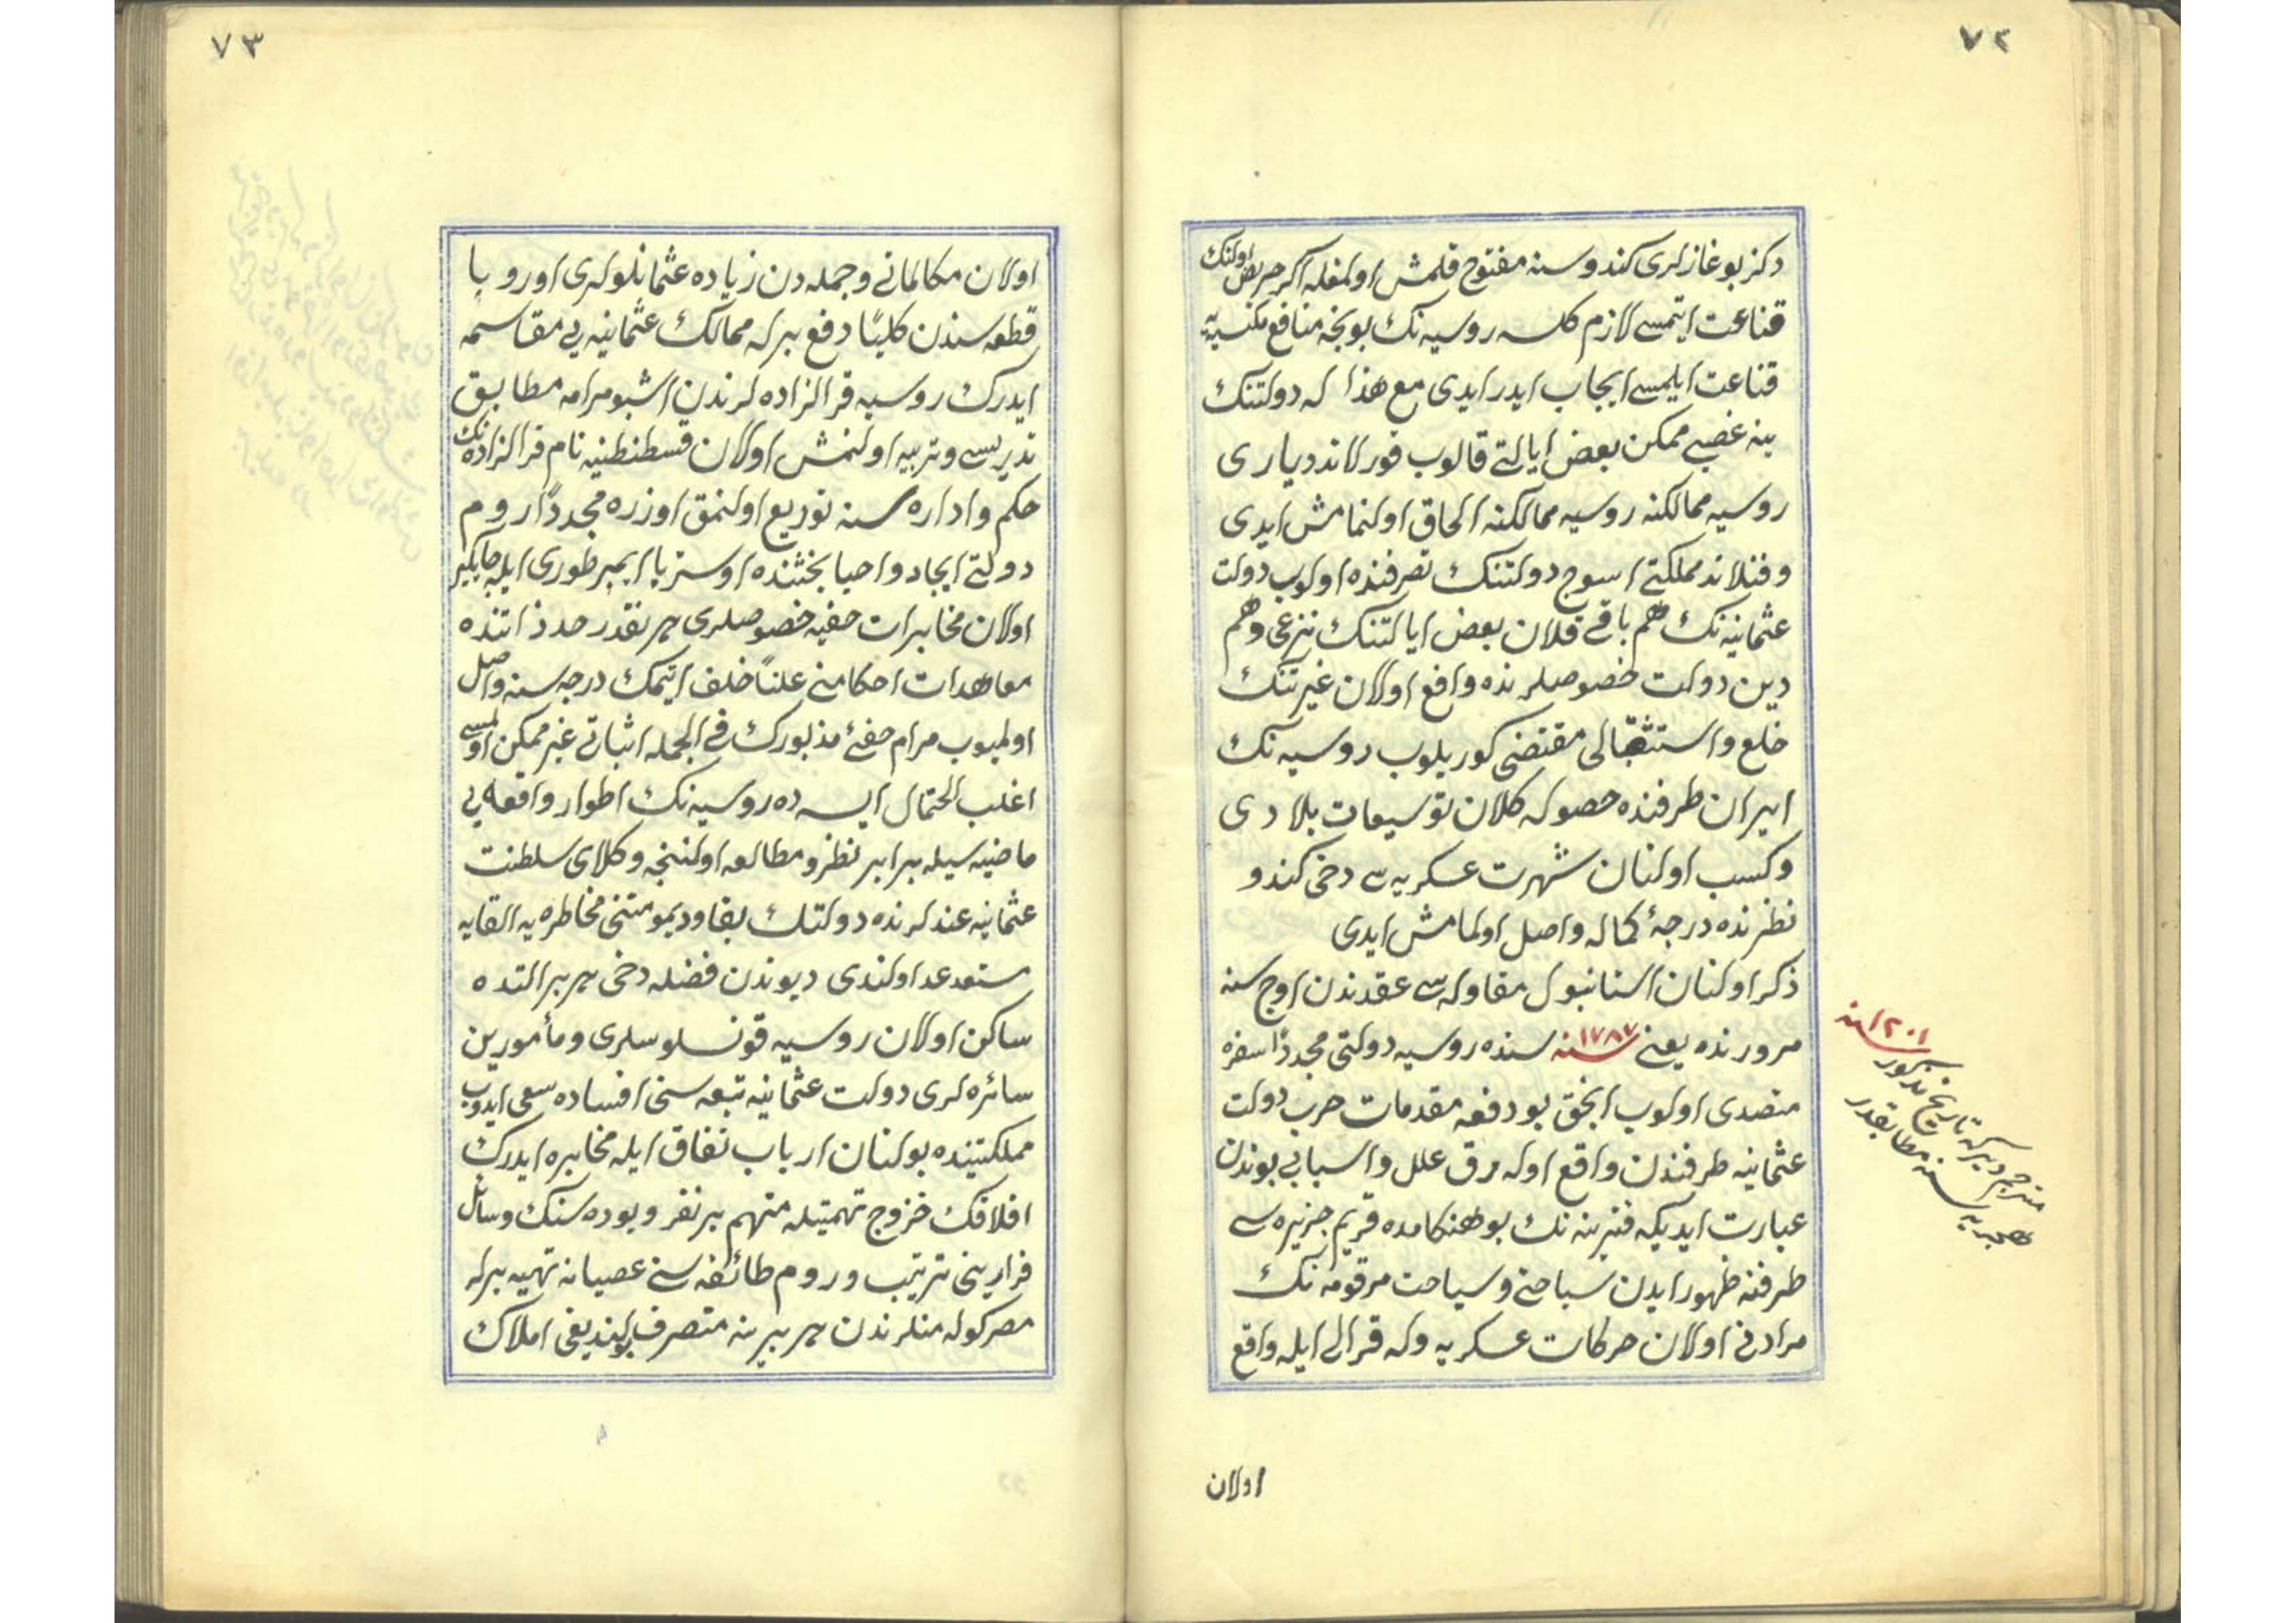 ٧٢
دكز بوغازلری كندوسنه مفتوح قلمش اولمغله اكر حريص اولنك
قناعت ايتمسی لازم كلسه روسيه نك بونجه منافع مكتسبه يه
قناعت ايلمسی ايجاب ايدر ايدی مع هذا له دولتنك
ينه غصبی ممكن بعض ايالتی قالوب قورلاند دياری
روسيه ممالكنه روسيه ممالكنه الحاق اولنمامش ايدی
وفنلاند مملكتی اسوج دولتنك تصرفنده اولوب دولت
عثمانيه نك هم باقی قلان بعض ايالتنك نزعی وهم
دين دولت خصوصلرنده واقع اولان غيرتنك
خلع واستثقالی مقتضی كوريلوب روسيه نك
ايران طرفنده حصوله كلان توسيعات بلادی
وكسب اولنان شهرت عسكريه سی دخی كندو
نظرنده درجهٔ كماله واصل اولمامش ايدی
ذكر اولنان استانبول مقاوله سی عقدندن اوج سنه
مرورنده يعنی ١٧٨٧ سنه سنده روسيه دولتی مجدداً سفره
متصدی اولوب انجق بو دفعه مقدمات حرب دولت
عثمانيه طرفندن واقع اوله رق علل واسبابی بوندن
عبارت ايديكه قترينه نك بو هنكامده قريم جزيره سی
طرفنه ظهور ايدن سياحتی وسياحت مرقومه نك
مرادفی اولان حركات عسكريه وله قرالی ايله واقع
١٢٠١ سنه
مترجم ديركه تاريخ مذكور
هجريه سنه مطابقدر
اولان
٧٣
اولان مكالماتی وجمله دن زياده عثمانلولری اوروپا
قطعه سندن كلياً دفع برله ممالك عثمانيه يی مقاسمه
ايدرك روسيه قرالزاده لرندن اشبو مرامه مطابق
تدريسی وتربيه اولنمش اولان قسطنطنيه نام قرالزاده نك
حكم واداره سنه توزيع اولنمق اوزره مجدداً روم
دولتی ايجاد واحيا بحثنده اوستريا ايمپرطوری ايله جايكير
اولان مخابرات خفيه خصوصلری هر نقدر حد ذاتنده
معاهدات احكامنی علناً خلف ايتمك درجه سنه واصل
اولميوب مرام خفیٔ مذبورك فی الجمله اثباتی غير ممكن اولمسی
اغلب احتمال ايسه ده روسيه نك اطوار واقعه يی
ماضيه سيله برابر نظر ومطالعه اولننجه وكلای سلطنت
عثمانيه عندلرنده دولتك بقا وديمومتنی مخاطره يه القايه
مستعد عد اولندی ديوندن فضله دخی هر بر التده
ساكن اولان روسيه قونسلوسلری ومأمورين
سائره لری دولت عثمانيه تبعه سنی افساده سعی ايدوب
مملكتينده بولنان ارباب نفاق ايله مخابره ايدرك
افلاقك خروج تهمتيله متهم بر نفر ويوده سنك وسائل
فرارينی ترتيب وروم طائفه سنی عصيانه تهييه برله
مصر كوله منلرندن هر برينه متصرف بولنديغی املاك